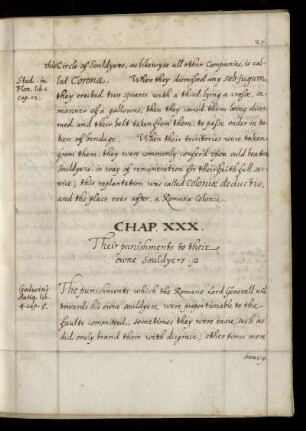 27.
this Circle of Souldyers, as likewyse all other Companies, is cal-
led Corona. When they dismissed any sub jugum,
they erected two speares with a third lying a crosse, in
manner of a gallowes, then they causd them being disar-
med, and their belt taken from them, to passe under in to-
ken of bondage. When their territories were taken
from them, they were commonly conferd upon ould beaten
Souldyers, in way of remuneration for their faithfull ser-
vice; this
plantation was called Coloniæ deductio,
and the place ever after, a Romane Colonie.
Stad. in
Flor. lib. 1.
cap. 12.
CHAP. XXX.
Their punishments to their
owne Souldyers.
Godwin's
Antiq. lib.
4. cap. 5.
The punishments which the Romane Lord Generall usd
towards his owne souldyers, were proportionable to the
faults committed, sometimes they were easie, such as
did onely brand them with disgrace; other times more
heavy